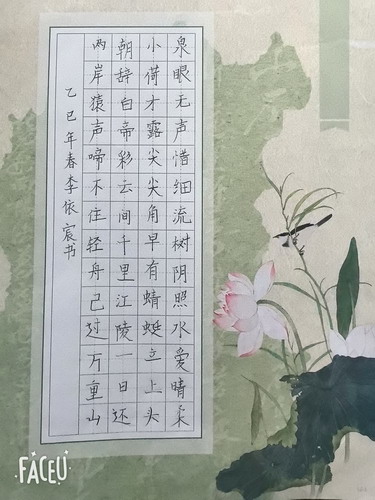 泉眼无声惜细流树阴照水爱晴柔
小荷才露尖尖角早有蜻蜓立上头
朝辞白帝彩云间千里江陵一日还
两岸猿声啼不住轻舟已过万重山
乙巳年春李依宸书
FACEU